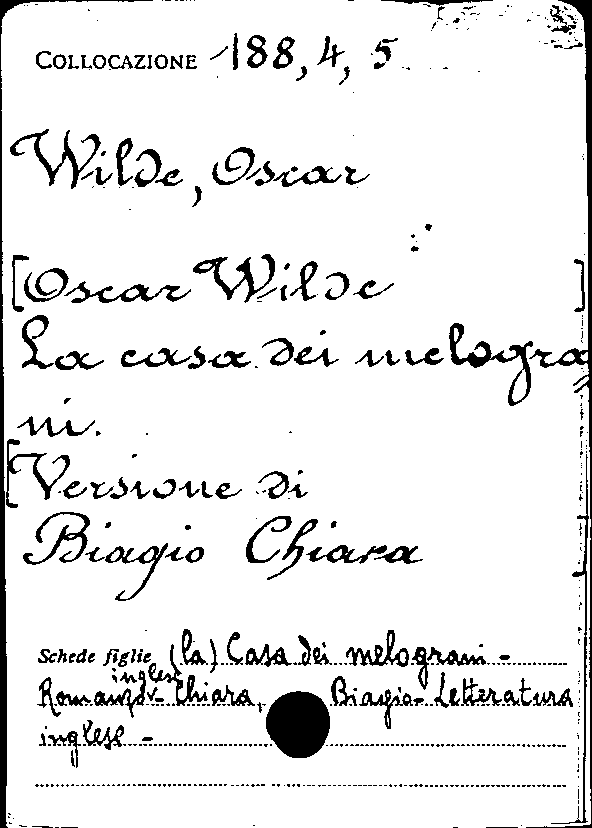 COLLOCAZIONE 188, 4, 5
Wilde, Oscar
[Oscar Wilde ]
La casa dei melogra=
ni.
[Versione di
Biagio Chiara ]
Schede figlie (la) Casa dei melograni -
inglese
Romanzo - Chiara, Biagio - Letteratura
inglese -